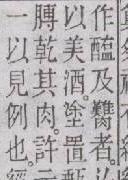 作醢及臡者。
以美酒。塗置甀
膊乾其肉。許
一以見例也。經